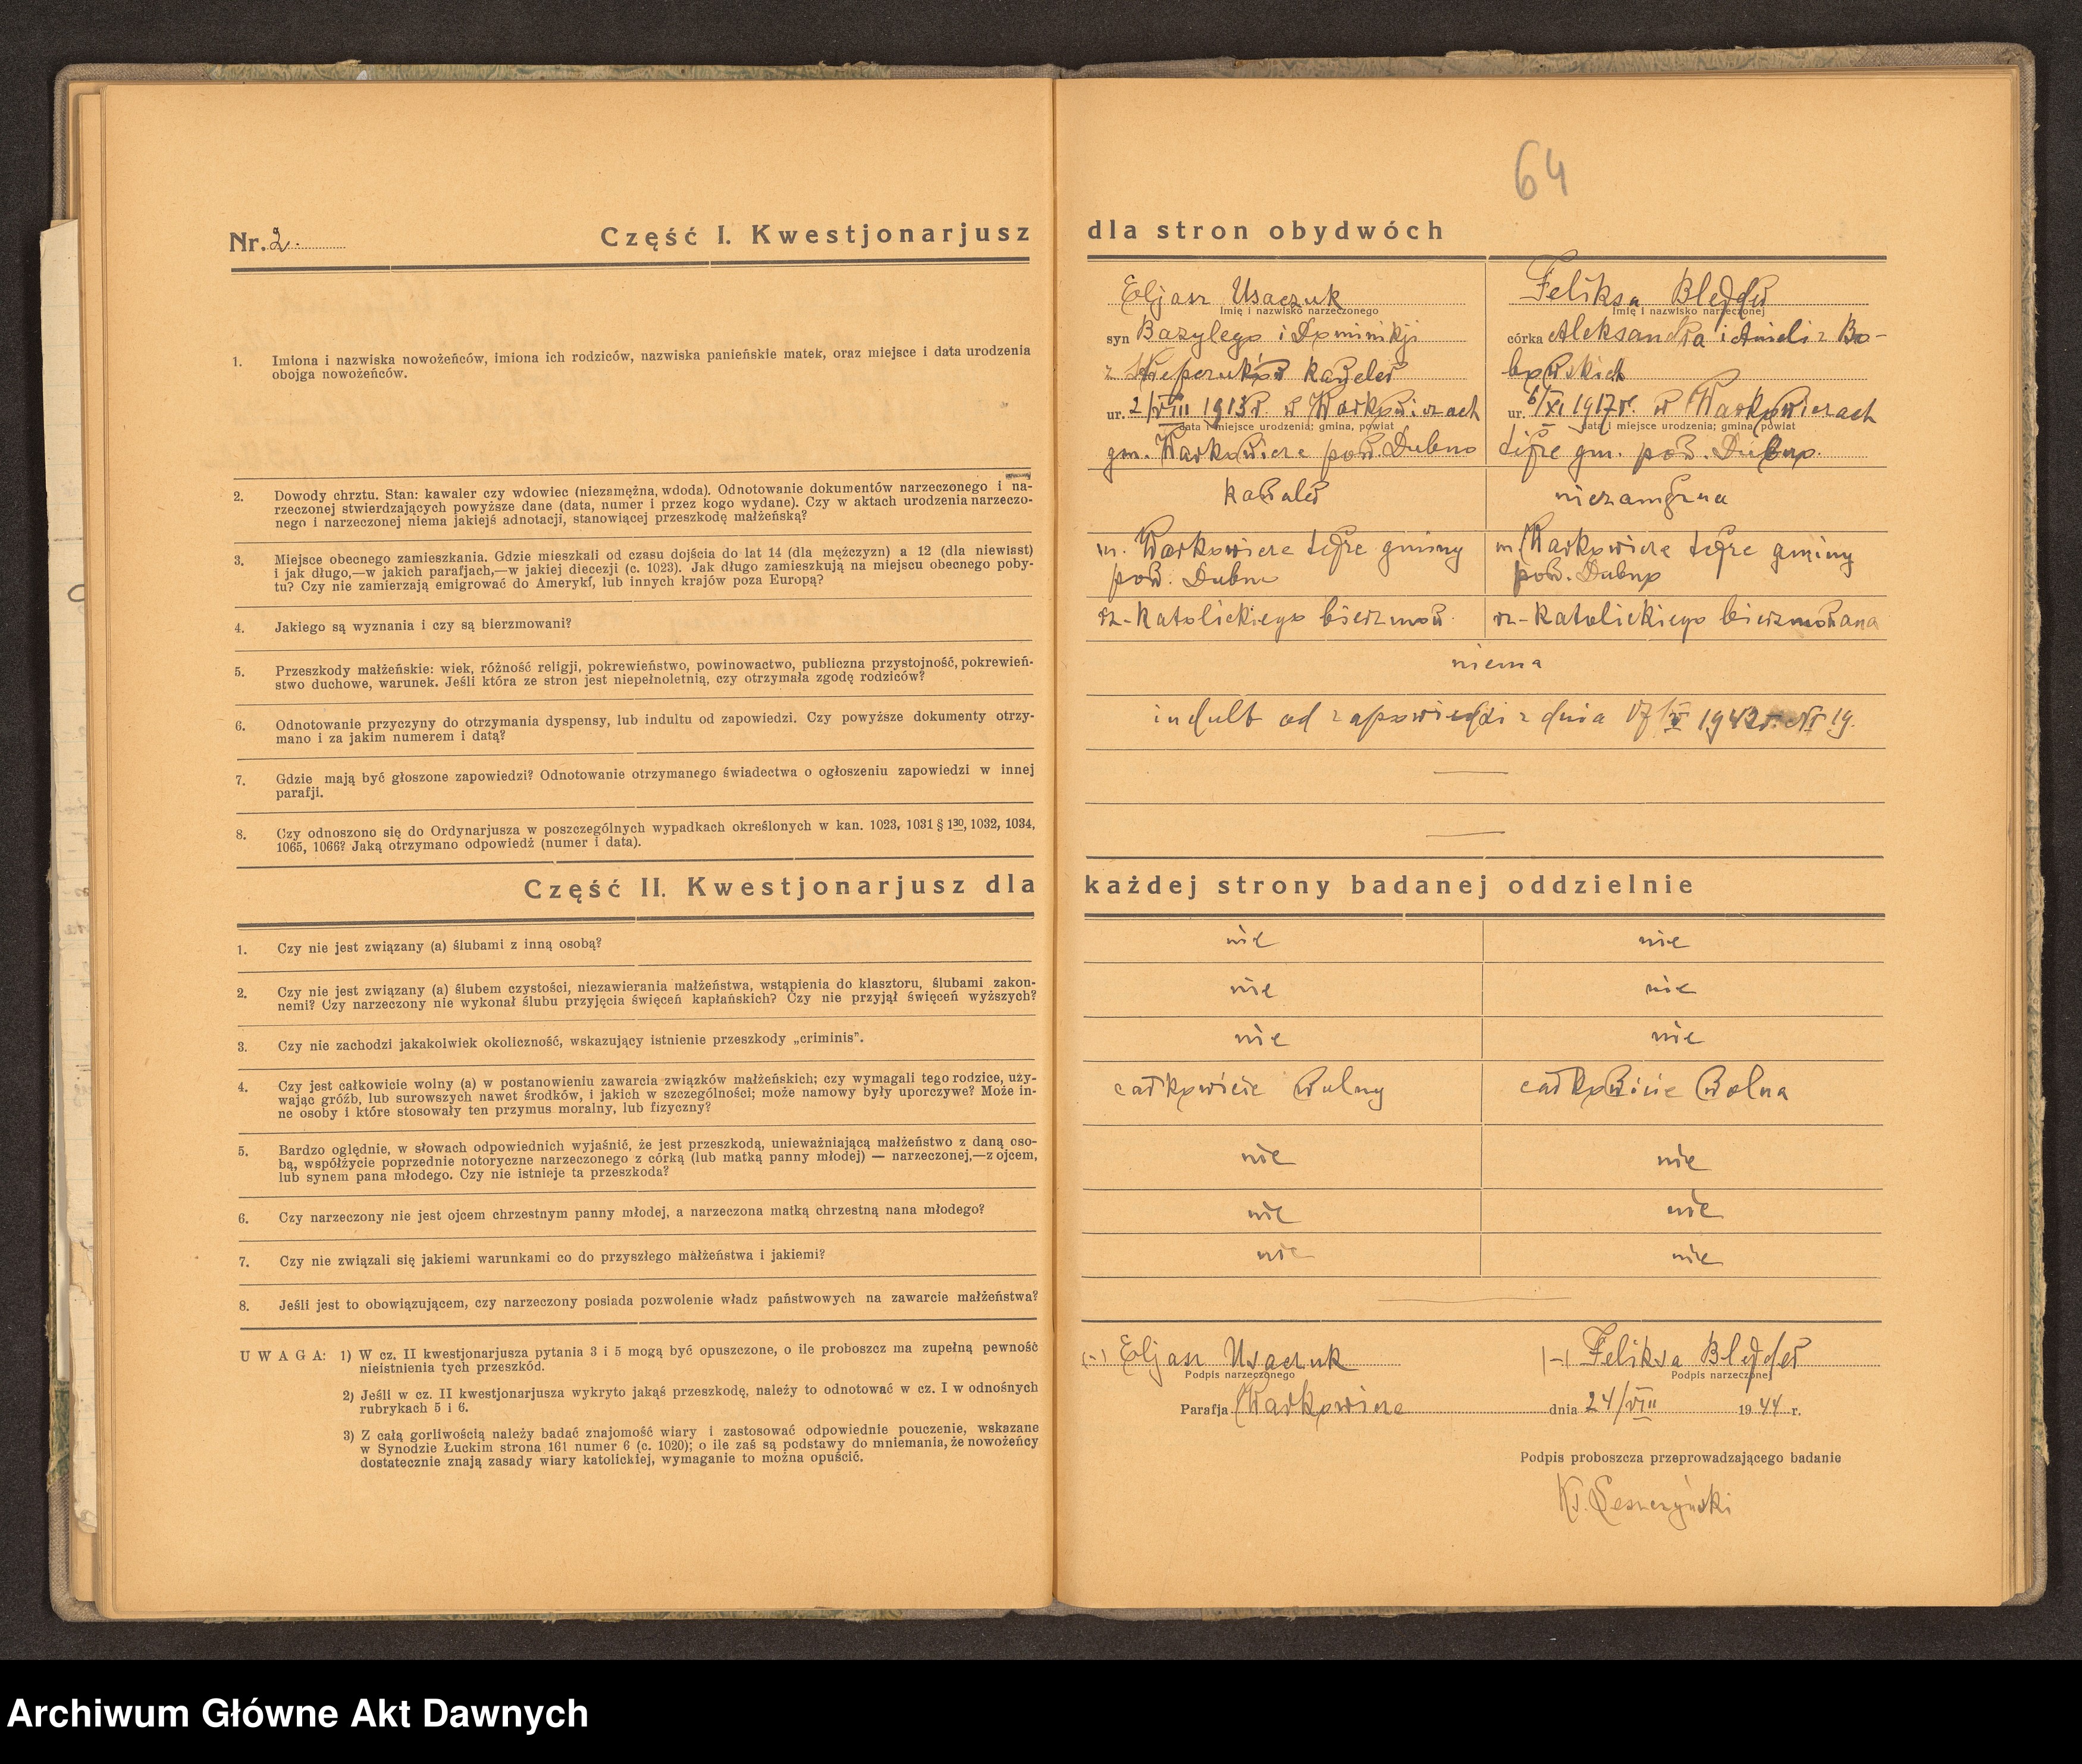 64
Nr. 2. Część I. Kwestjonarjusz dla stron obydwóch
1. Imiona i nazwiska nowożeńców, imiona ich rodziców, nazwiska panieńskie matek, oraz miejsce i data urodzenia
obojga nowożeńców.
Eljasz Usaczuk
Imię i nazwisko narzeczonego
syn Bazylego i Dominikji
z
ur. 2/VIII 1913 r. w Warkowiczach
data i miejsce urodzenia; gmina, powiat
gm. Warkowicze pow. Dubno
Feliksa Blejder
Imię i nazwisko narzeczonej
córka Aleksandra i Anieli z Bo-
bowskich
ur. 6/XI 1917 r. w Warkowiczach
data i miejsce urodzenia; gmina, powiat
tejże gm. pow. Dubno.
2. Dowody chrztu. Stan: kawaler czy wdowiec (niezamężna, wdoda). Odnotowanie dokumentów narzeczonego i na-
rzeczonej stwierdzających powyższe dane (data, numer i przez kogo wydane). Czy w aktach urodzenia narzeczo-
nego i narzeczonej niema jakiejś adnotacji, stanowiącej przeszkodę małżeńską?
kawaler niezamężna
3. Miejsce obecnego zamieszkania. Gdzie mieszkali od czasu dojścia do lat 14 (dla mężczyzn) a 12 (dla niewiast)
i jak długo,—w jakich parafjach,—w jakiej diecezji (c. 1023). Jak długo zamieszkują na miejscu obecnego poby-
tu? Czy nie zamierzają emigrować do Ameryki, lub innych krajów poza Europą?
m. Warkowicze tejże gminy
pow. Dubno
m. Warkowicze tejże gminy
pow. Dubno
4. Jakiego są wyznania i czy są bierzmowani?
rz-katolickiego bierzmow. rz-katolickiego bierzmowana
5. Przeszkody małżeńskie: wiek, różność religji, pokrewieństwo, powinowactwo, publiczna przystojność, pokrewień-
stwo duchowe, warunek. Jeśli która ze stron jest niepełnoletnią, czy otrzymała zgodę rodziców?
niema
6. Odnotowanie przyczyny do otrzymania dyspensy, lub indultu od zapowiedzi. Czy powyższe dokumenty otrzy-
mano i za jakim numerem i datą?
indult od zapowiedzi z dnia 17/V 1942 r. Nr 19.
7. Gdzie mają być głoszone zapowiedzi? Odnotowanie otrzymanego świadectwa o ogłoszeniu zapowiedzi w innej
parafji.
8. Czy odnoszono się do Ordynarjusza w poszczególnych wypadkach określonych w kan. 1023, 1031 § 1 30, 1032, 1034,
1065, 1066? Jaką otrzymano odpowiedź (numer i data).
Część II. Kwestjonarjusz dla każdej strony badanej oddzielnie
1. Czy nie jest związany (a) ślubami z inną osobą?
nie nie
2. Czy nie jest związany (a) ślubem czystości, niezawierania małżeństwa, wstąpienia do klasztoru, ślubami zakon-
nemi? Czy narzeczony nie wykonał ślubu przyjęcia święceń kapłańskich? Czy nie przyjął święceń wyższych?
nie nie
3. Czy nie zachodzi jakakolwiek okoliczność, wskazujący istnienie przeszkody „criminis”.
nie nie
4. Czy jest całkowicie wolny (a) w postanowieniu zawarcia związków małżeńskich; czy wymagali tego rodzice, uży-
wając gróźb, lub surowszych nawet środków, i jakich w szczególności; może namowy były uporczywe? Może in-
ne osoby i które stosowały ten przymus moralny, lub fizyczny?
całkowicie wolny całkowicie wolna
5. Bardzo oględnie, w słowach odpowiednich wyjaśnić, że jest przeszkodą, unieważniającą małżeństwo z daną oso-
bą, współżycie poprzednie notoryczne narzeczonego z córką (lub matką panny młodej) — narzeczonej,—z ojcem,
lub synem pana młodego. Czy nie istnieje ta przeszkoda?
nie nie
6. Czy narzeczony nie jest ojcem chrzestnym panny młodej, a narzeczona matką chrzestną nana młodego?
nie nie
7. Czy nie związali się jakiemi warunkami co do przyszłego małżeństwa i jakiemi?
nie nie
8. Jeśli jest to obowiązującem, czy narzeczony posiada pozwolenie władz państwowych na zawarcie małżeństwa?
UWAGA: 1) W cz. II kwestjonarjusza pytania 3 i 5 mogą być opuszczone, o ile proboszcz ma zupełną pewność
nieistnienia tych przeszkód.
2) Jeśli w cz. II kwestjonarjusza wykryto jakąś przeszkodę, należy to odnotować w cz. I w odnośnych
rubrykach 5 i 6.
3) Z całą gorliwością należy badać znajomość wiary i zastosować odpowiednie pouczenie, wskazane
w Synodzie Łuckim strona 161 numer 6 (c. 1020); o ile zaś są podstawy do mniemania, że nowożeńcy
dostatecznie znają zasady wiary katolickiej, wymaganie to można opuścić.
(-) Eljasz Usaczuk (-) Feliksa Blejder
Podpis narzeczonego Podpis narzeczonej
Parafja Warkowicze dnia 24/VIII 1944 r.
Podpis proboszcza przeprowadzającego badanie
Ks. Leszczyński
Archiwum Główne Akt Dawnych